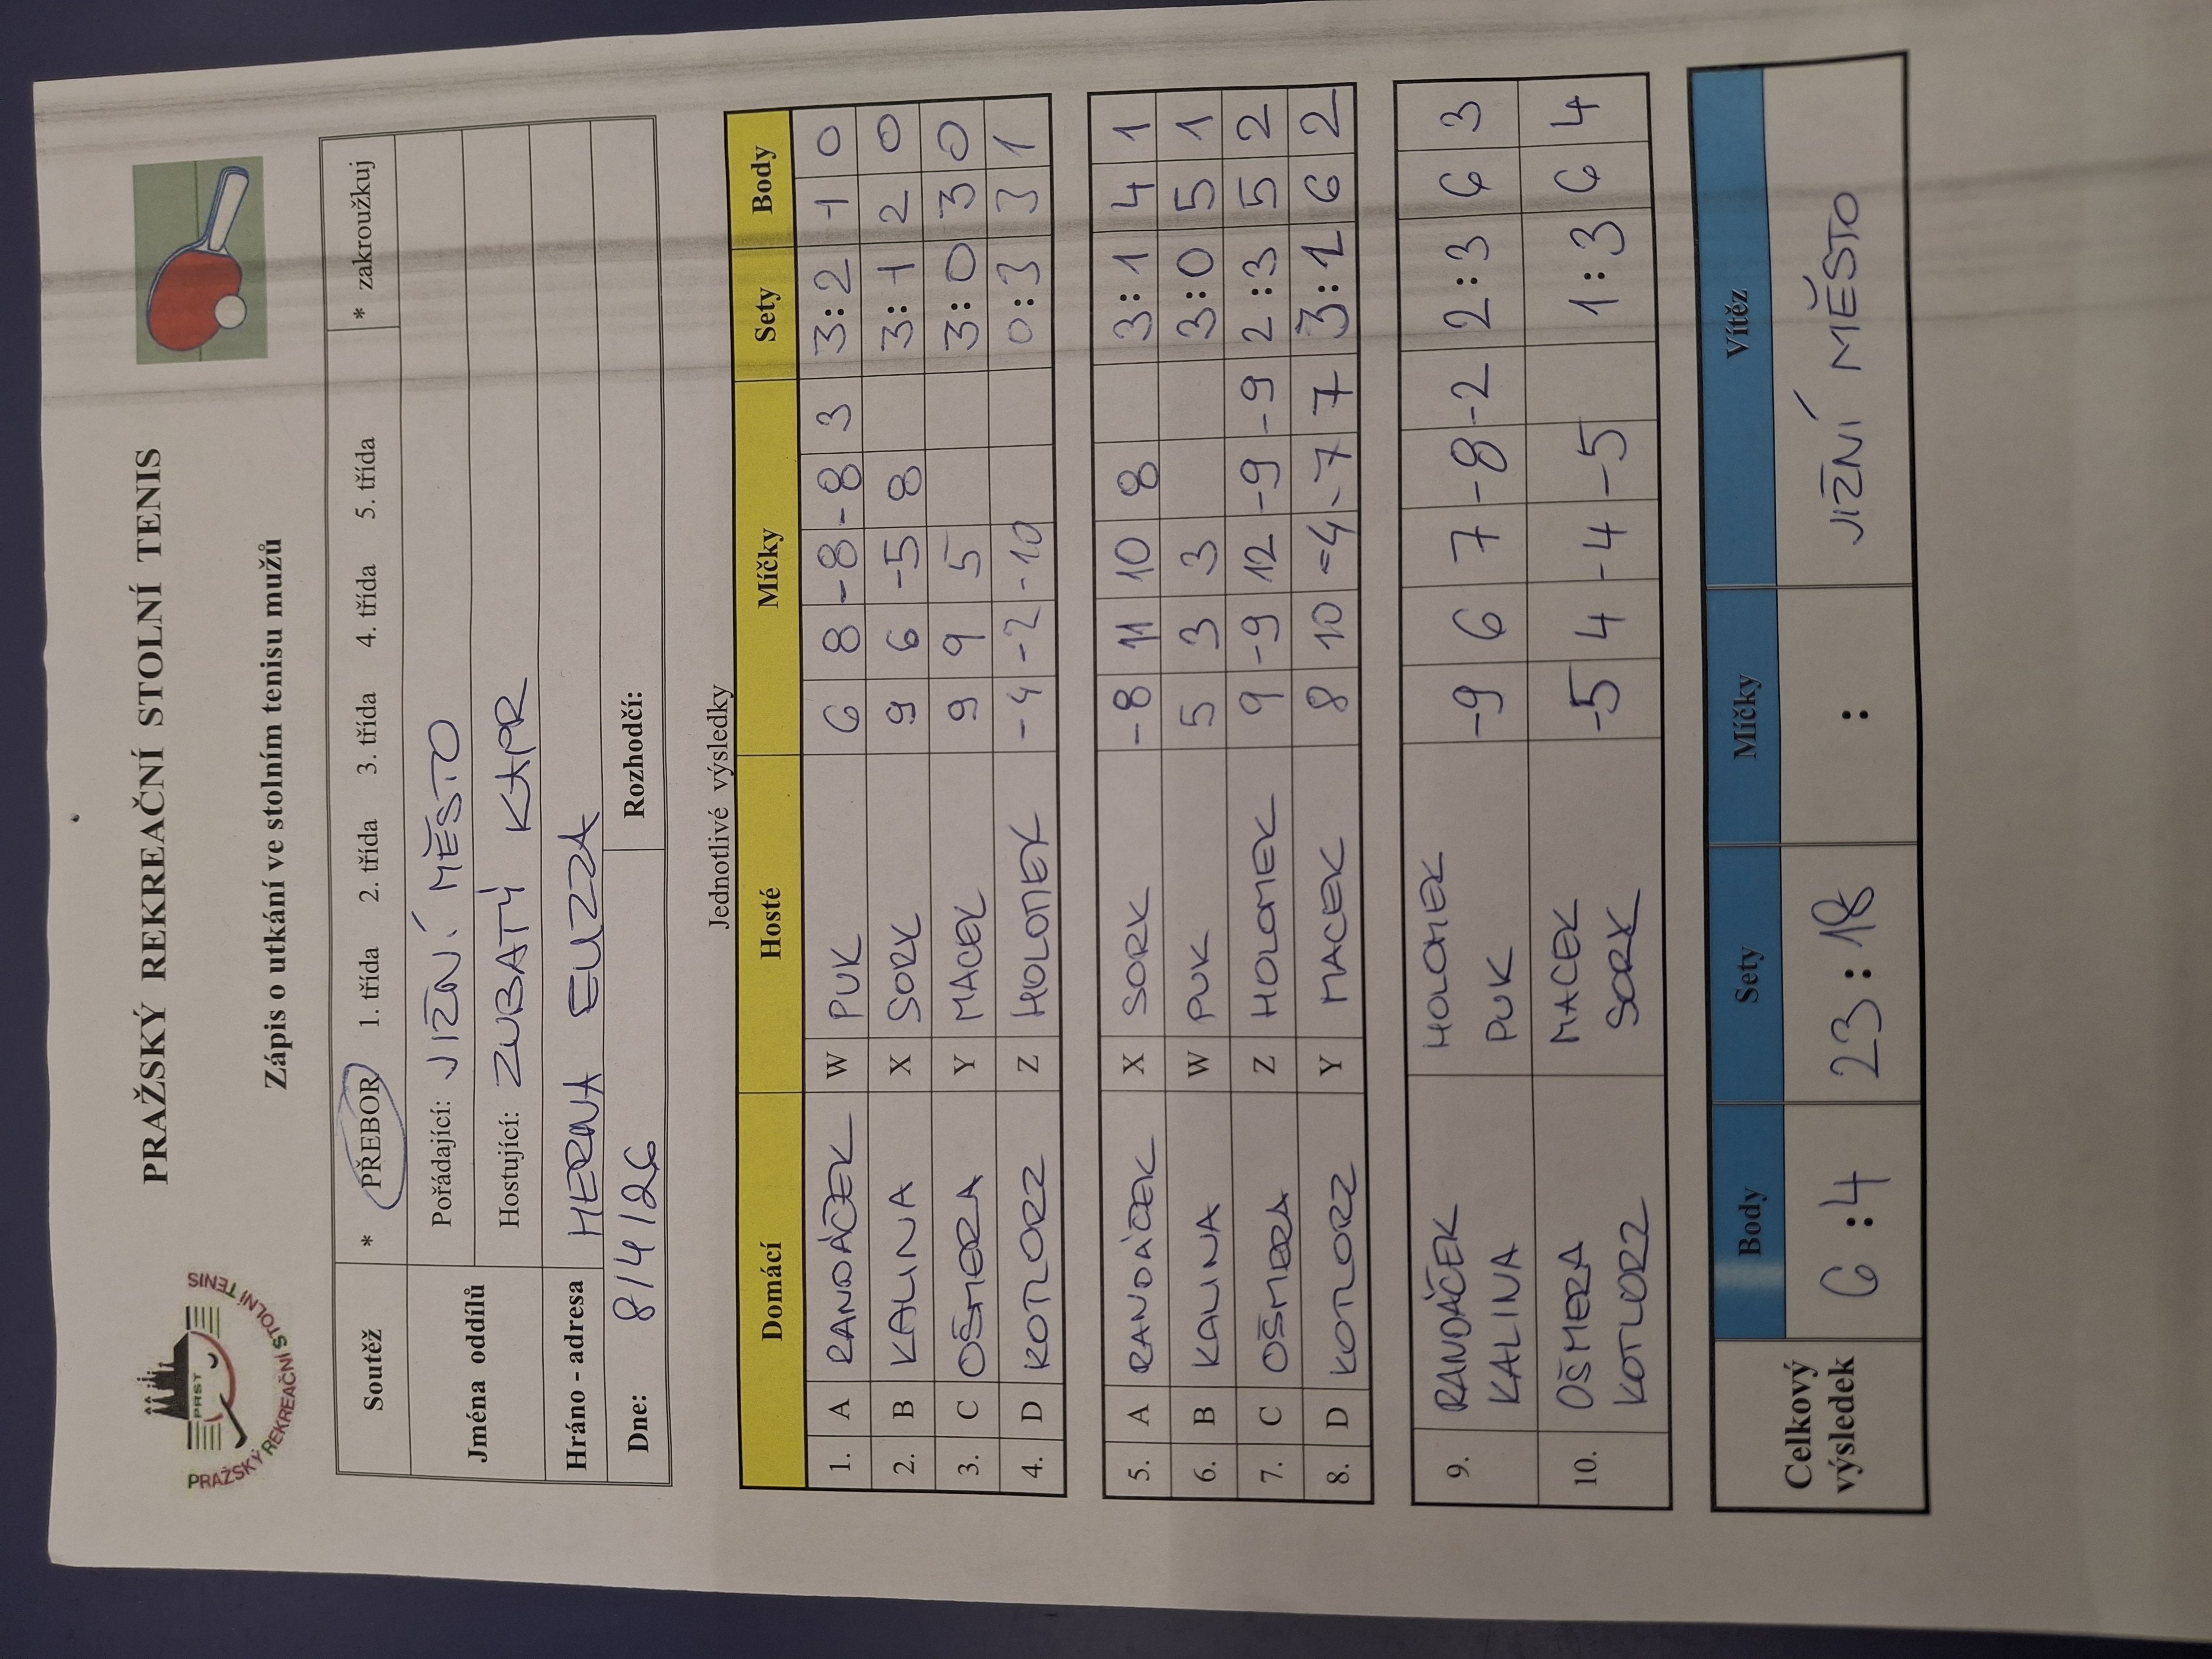 PRAŽSKÝ REKREAČNÍ STOLNÍ TENIS
PRST
PRAŽSKÝ REKREAČNÍ STOLNÍ TENIS
Zápis o utkání ve stolním tenisu mužů
Soutěž * PŘEBOR 1. třída 2. třída 3. třída 4. třída 5. třída * zakroužkuj
Jména oddílů Pořádající: JIŽNÍ MĚSTO
Hostující: ZUBATÝ KAPR
Hráno - adresa HERNA ELIZZA
Dne: 8/4/26 Rozhodčí:
Jednotlivé výsledky
Domácí Hosté Míčky Sety Body
1. A RANDÁČEK W PUK 6 8 -8 -8 3 3:2 1 0
2. B KALINA X SORK 9 6 -5 8 3:1 2 0
3. C OŠMERA Y MACEK 9 9 5 3:0 3 0
4. D KOTLORZ Z HOLOMEK -4 -2 -10 0:3 3 1
5. A RANDÁČEK X SORK -8 11 10 8 3:1 4 1
6. B KALINA W PUK 5 3 3 3:0 5 1
7. C OŠMERA Z HOLOMEK 9 -9 12 -9 -9 2:3 5 2
8. D KOTLORZ Y MACEK 8 10 -4 -7 7 3:2 6 2
9. RANDÁČEK HOLOMEK -9 6 7 -8 -2 2:3 6 3
KALINA PUK
10. OŠMERA MACEK -5 4 -4 -5 1:3 6 4
KOTLORZ SORK
Celkový výsledek Body Sety Míčky Vítěz
6:4 23:18 : JIŽNÍ MĚSTO